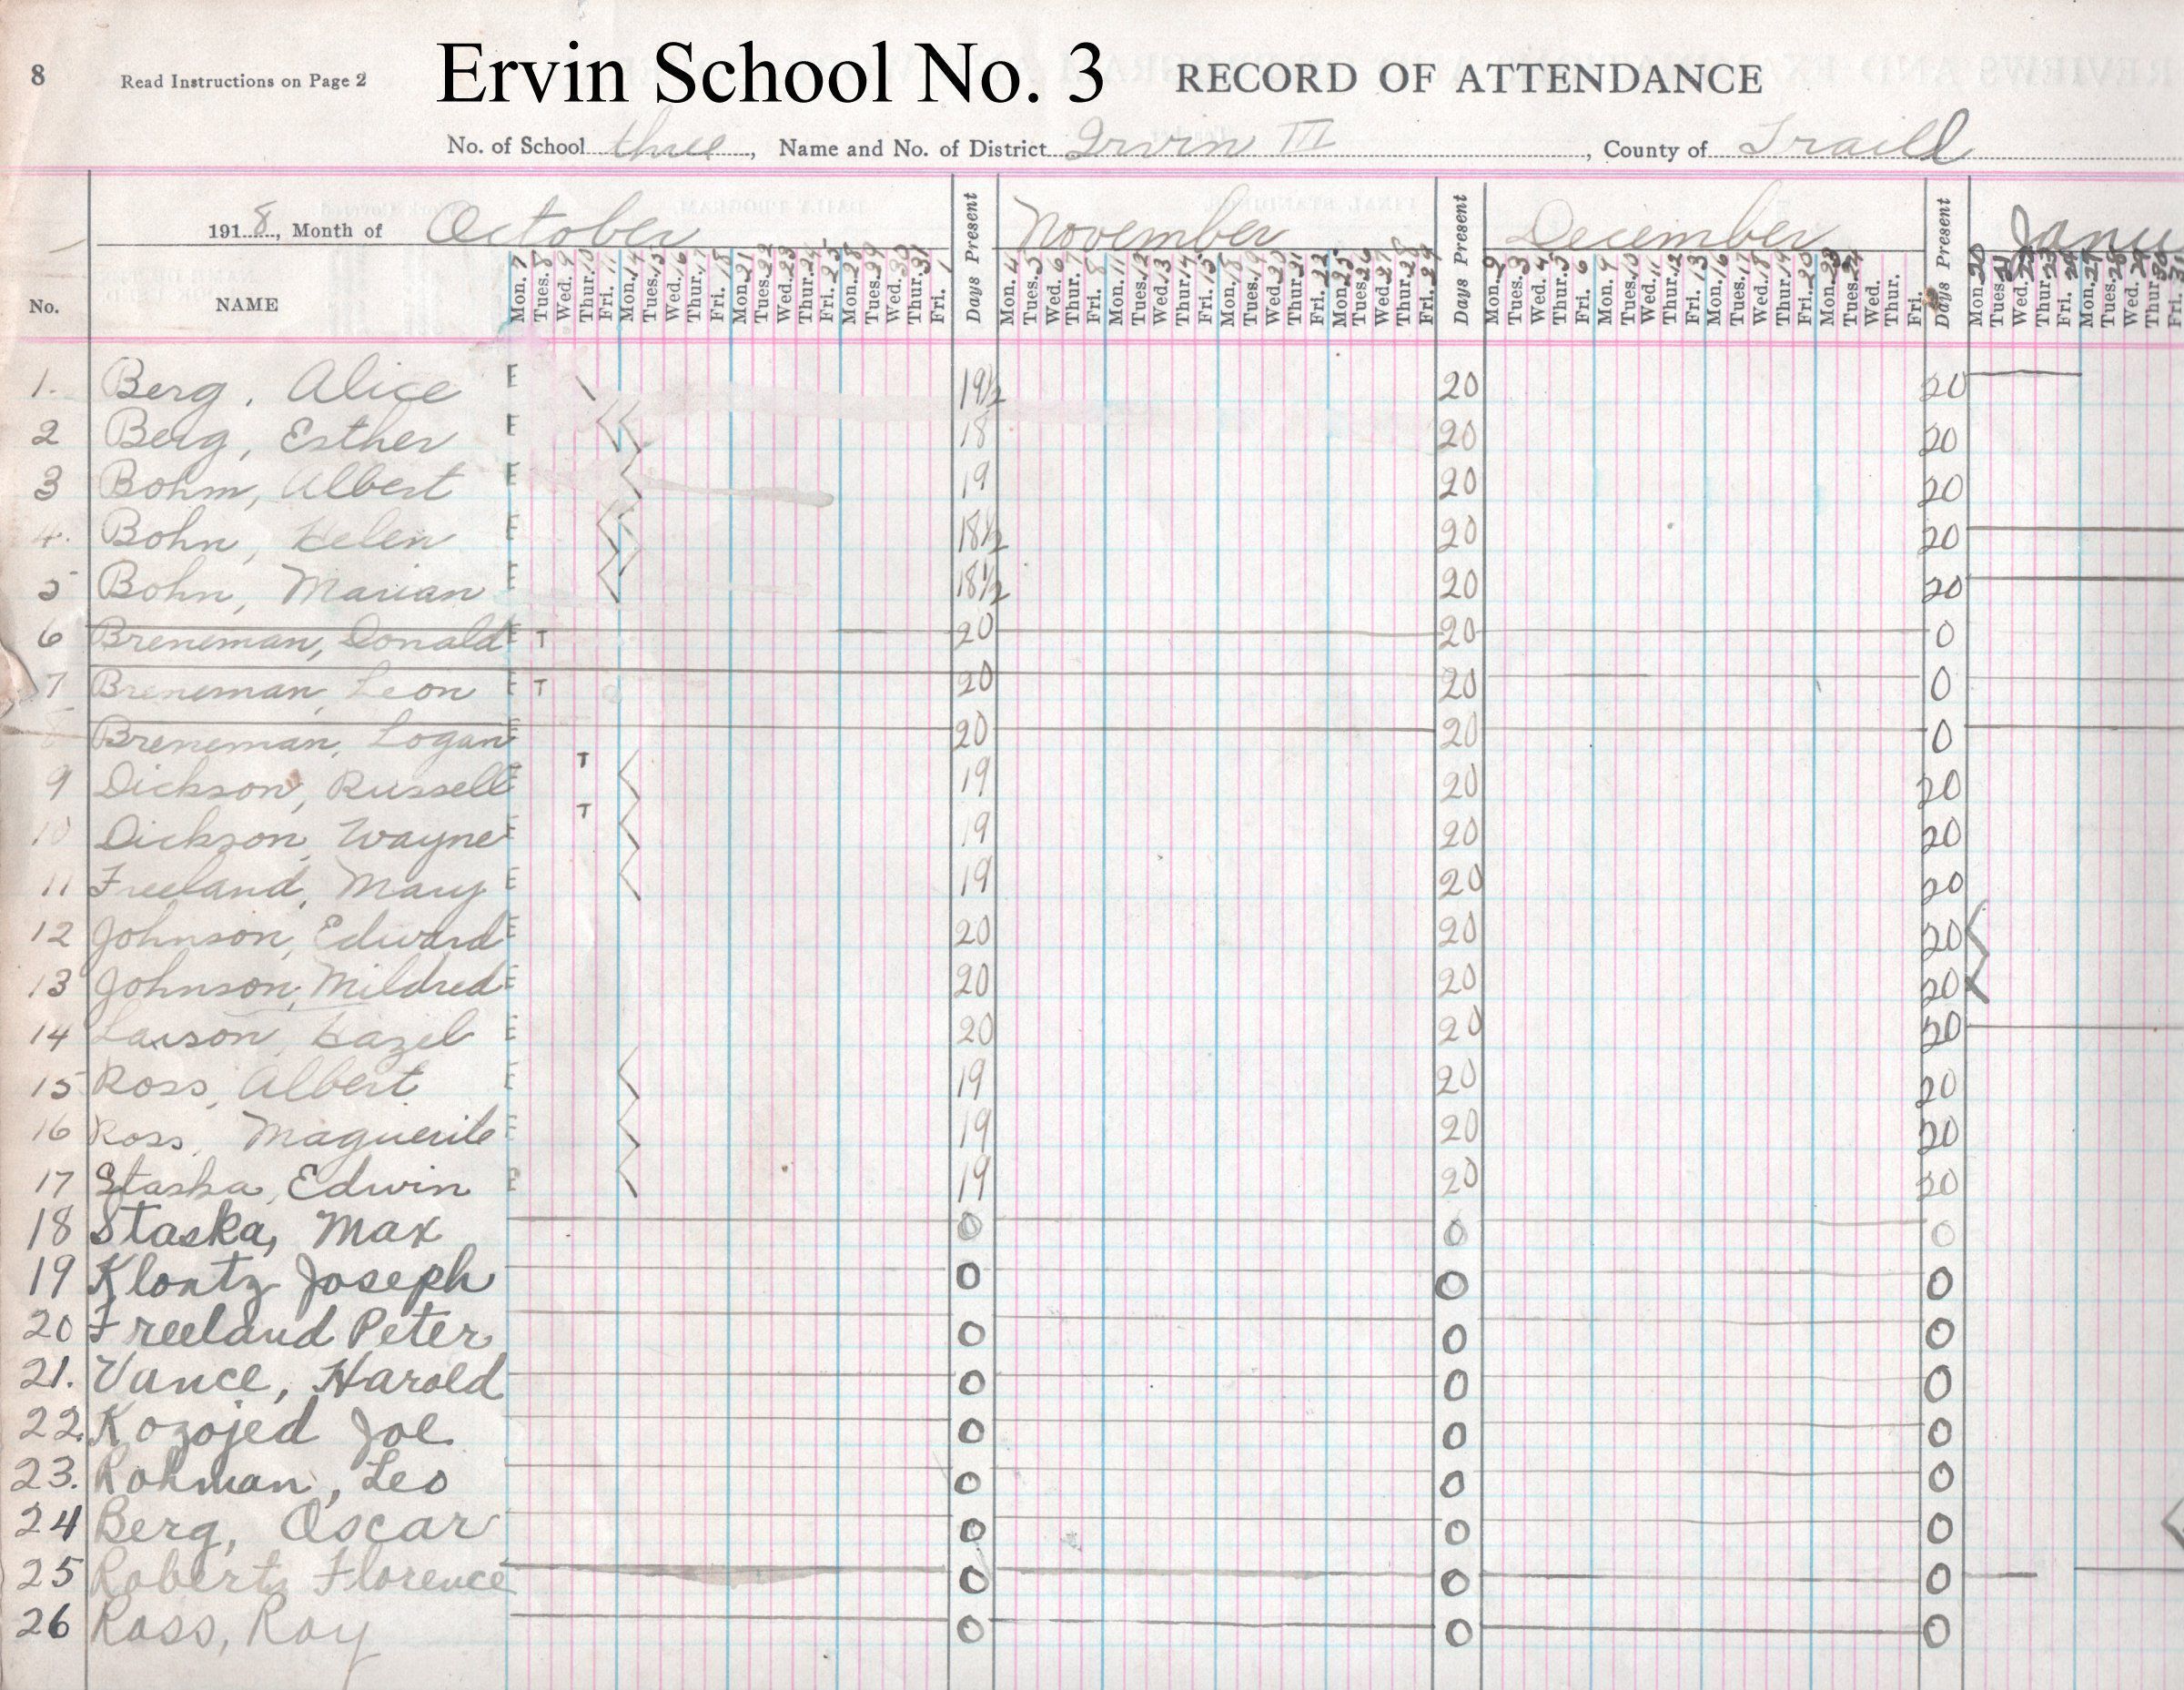 8 Read Instructions on Page 2 Ervin School No. 3 RECORD OF ATTENDANCE
No. of School three, Name and No. of District Irvin III, County of Traill
1918, Month of October Days Present November Days Present December Days Present Janu
No. NAME Mon. 7 Tues. 8 Wed. 9 Thur. 10 Fri. 11 Mon. 14 Tues. 15 Wed. 16 Thur. 17 Fri. 18 Mon. 21 Tues. 22 Wed. 23 Thur. 24 Fri. 25 Mon. 28 Tues. 29 Wed. 30 Thur. 31 Fri. 1 Mon. 4 Tues. 5 Wed. 6 Thur. 7 Fri. 8 Mon. 11 Tues. 12 Wed. 13 Thur. 14 Fri. 15 Mon. 18 Tues. 19 Wed. 20 Thur. 21 Fri. 22 Mon. 25 Tues. 26 Wed. 27 Thur. 28 Fri. 29 Mon. Tues. 3 Wed. 4 Thur. 5 Fri. 6 Mon. 9 Tues. 10 Wed. 11 Thur. 12 Fri. 13 Mon. 16 Tues. 17 Wed. 18 Thur. 19 Fri. 20 Mon. 23 Tues. 24 Wed. Thur. Fri. Mon. 20 Tues. 21 Wed. 22 Thur. 23 Fri. 24 Mon. 27 Tues. 28 Wed. 29 Thur. 30 Fri. 31
1. Berg, Alice E \ 19½ 20 20
2 Berg, Esther E 18 20 20
3 Bohm, Albert E 19 20 20
4. Bohn, Helen E 18½ 20 20
5 Bohn, Marian E 18½ 20 20
6 Breneman, Donald E T 20 20 0
7 Breneman, Leon E T 20 20 0
8 Breneman, Logan E 20 20 0
9 Dickson, Russell E T 19 20 20
10 Dickson, Wayne E T 19 20 20
11 Freeland, Mary E 19 20 20
12 Johnson, Edward E 20 20 20
13 Johnson, Mildred E 20 20 20
14 Larson, Hazel E 20 20 20
15 Ross, Albert E 19 20 20
16 Ross, Maguerite E 19 20 20
17 Staska, Edwin E 19 20 20
18 Staska, Max 0 0 0
19 Klontz Joseph 0 0 0
20 Freeland Peter 0 0 0
21. Vance, Harold 0 0 0
22. Kozojed Joe 0 0 0
23. Rohman, Leo 0 0 0
24 Berg, Oscar 0 0 0
25 Roberts Florence 0 0 0
26 Ross, Roy 0 0 0